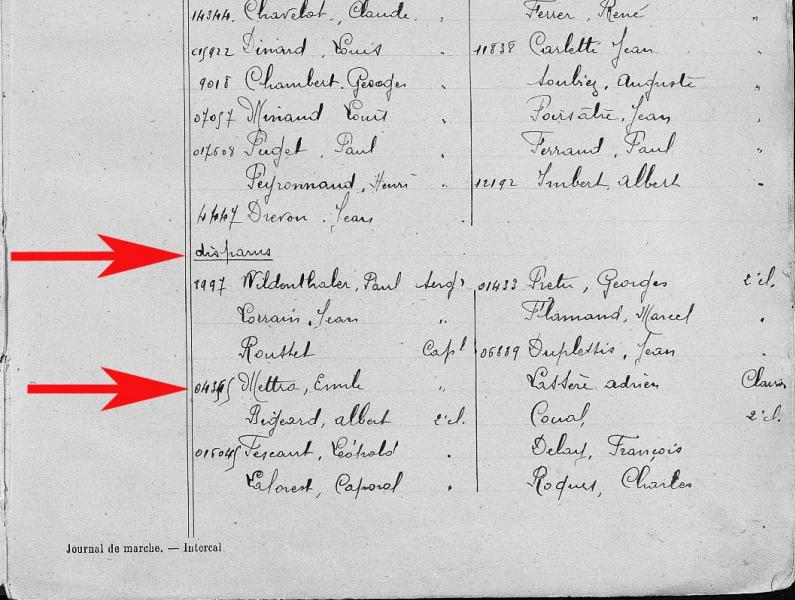 14344. Chavelot, Claude. "
Ferrer, René "
Dinard, Louis "
11838 Carlette Jean "
9018 Chambert, Georges "
Auguste "
07057 Minaud Louis "
Jean "
017508 Puget, Paul "
Ferraud, Paul "
Peyronnaud, Henri "
12192 Imbert, albert "
Drevon, Jean "
disparus
1997 Wildenthaler, Paul Sergt
01433 Pretu, Georges 2e cl.
Lorrain, Jean "
Flamand, Marcel "
Roustet Capl
06889 Duplessis, Jean "
Mettra, Emile "
Lassère adrien Clairon
Bigeard, albert 2e cl.
Coual, 2e cl.
Fescaut, Léopold "
Delay, François
Laforest, Caporal "
Roques, Charles
Journal de marche. — Intercal